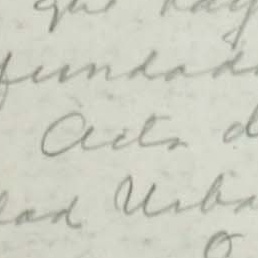 que hay
fundad
Acta d
dad Urba